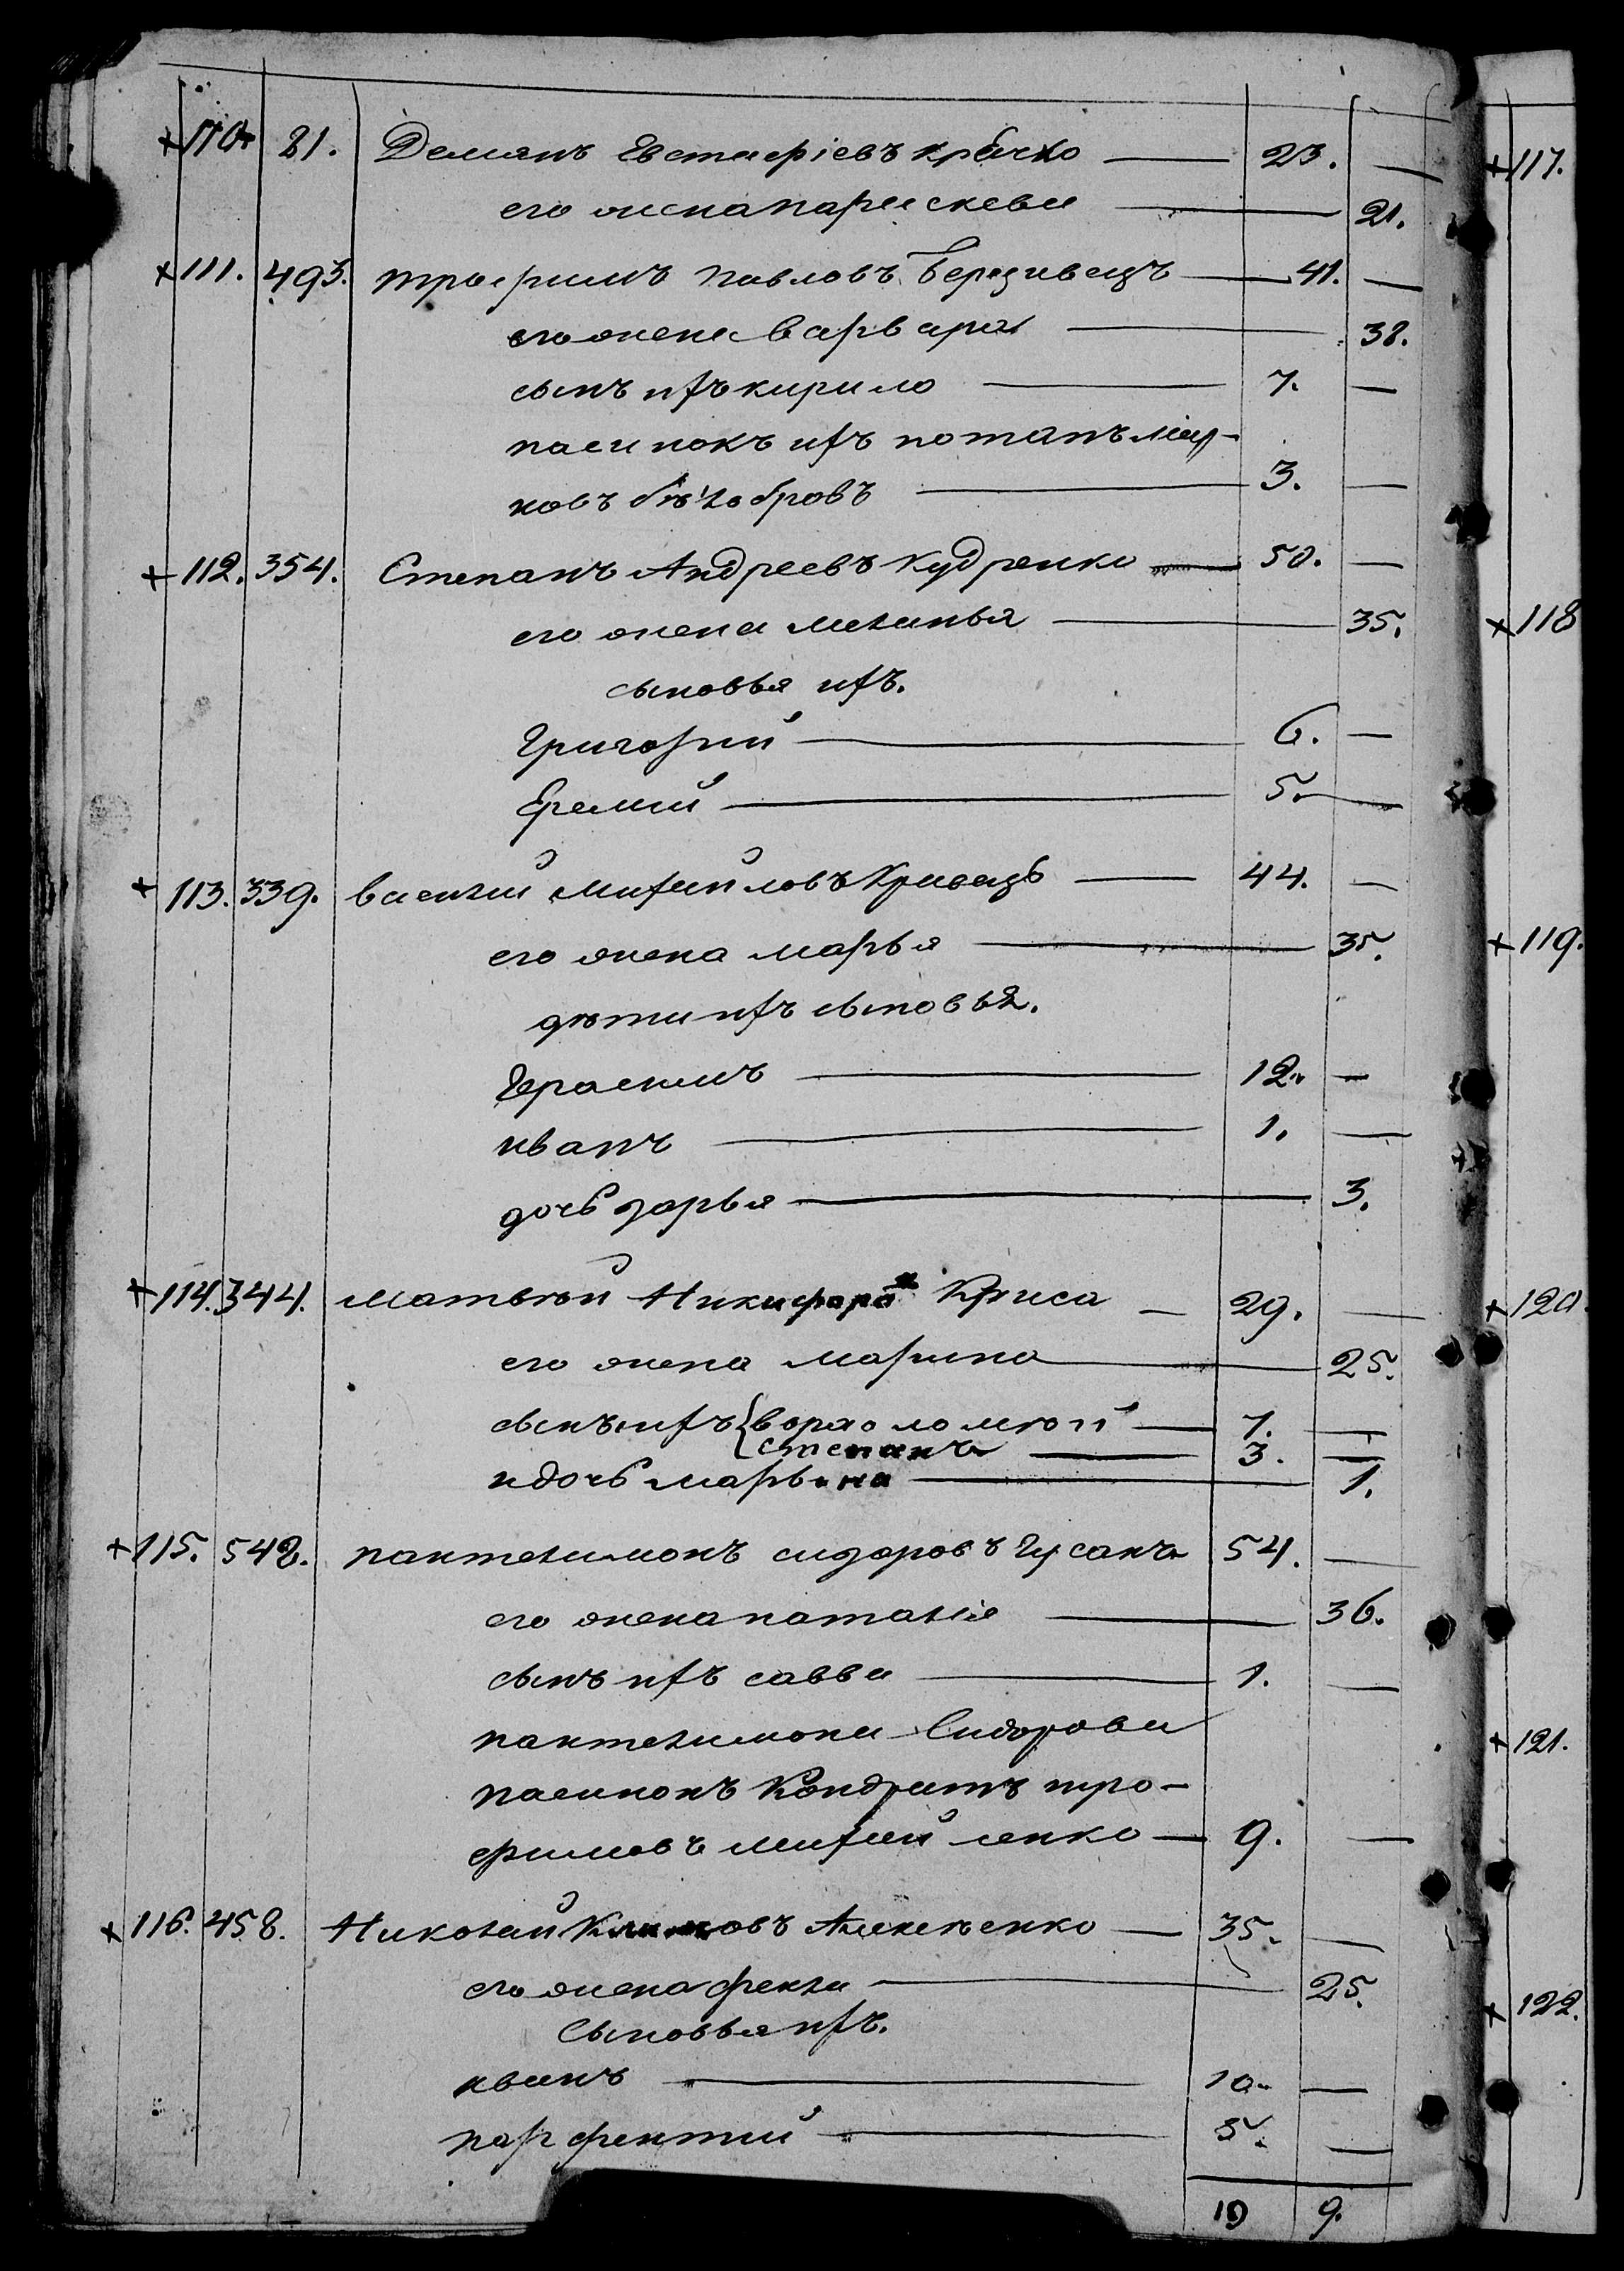 +110. 81. Демянъ Евстафіевъ — 23. —
его жена параскева — 21.
+111. 493. трофимъ павловъ Березивецъ — 41. —
его жена варвара — 38.
сынъ ихъ кирило — 7. —
пасинокъ ихъ потапъ мар-
ковъ бѣлобровъ — 3. —
+112. 354. Степанъ Андреевъ кудренко — 50. —
его жена меланья — 35.
сыновья ихъ.
Григорій — 6. —
Еремій — 5. —
+113. 339. василий михайловъ Кривецъ — 44. —
его жена марья — 35.
дѣти ихъ сыновья.
Герасимъ — 12. —
иванъ — 1. —
дочь дарья — 3.
+114. 344. матвѣй Никифоровъ Криса — 29. —
его жена марина — 25.
сынъ ихъ { ворфоломѣй — 7. —
{ степанъ — 3. —
и дочь марьяна — 1.
+115. 542. пантелимонъ сидоровъ Гусакъ 54. —
его жена наталія — 36.
сынъ ихъ савва — 1. —
пантелимона Сидорова
пасинокъ Кондратъ тро-
фимовъ михайленко — 9. —
+116. 458. Николай Климовъ Алексѣенко — 35. —
его жена фекла — 25.
Сыновья ихъ.
иванъ — 10. —
парфентий — 5. —
19 9.
+117.
+118
+119.
+120.
+121.
+122.